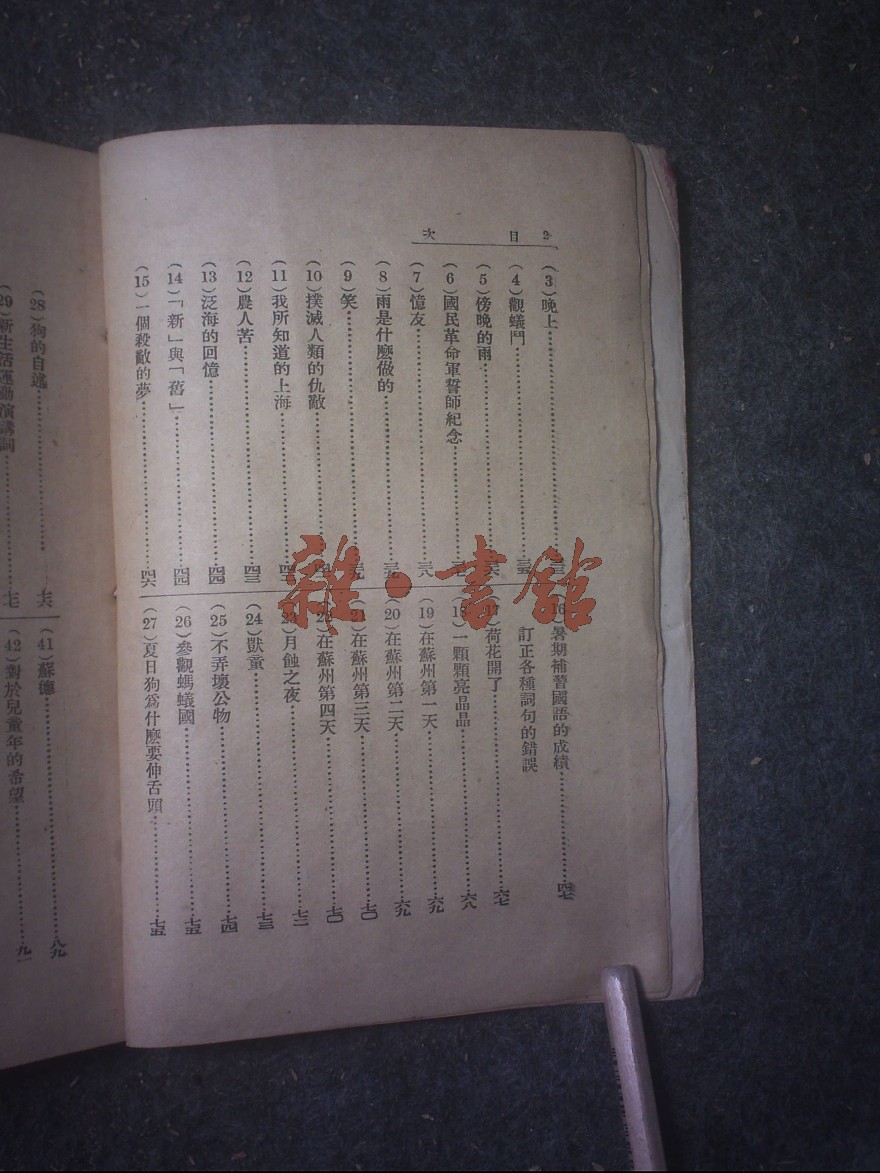 2 目 次
(3)晚上…………三三
(4)觀蟻鬥…………三五
(5)傍晚的雨…………三六
(6)國民革命軍誓師紀念…………三七
(7)憶友…………三八
(8)雨是什麽做的…………三九
(9)笑…………三九
(10)撲滅人類的仇敵…………
(11)我所知道的上海…………四二
(12)農人苦…………四三
(13)泛海的回憶…………四四
(14)「新」與「舊」…………四四
(15)一個殺敵的夢…………四六
(16)暑期補習國語的成績…………四七
訂正各種詞句的錯誤
(17)荷花開了…………六七
(18)一顆顆亮晶晶…………六八
(19)在蘇州第一天…………六九
(20)在蘇州第二天…………六九
(21)在蘇州第三天…………七〇
(22)在蘇州第四天…………七〇
(23)月蝕之夜…………七二
(24)獃童…………七三
(25)不弄壞公物…………七四
(26)參觀螞蟻國…………七五
(27)夏日狗爲什麽要伸舌頭…………七五
(28)狗的自述…………七六
(29)新生活運動演講詞…………七七
(41)蘇德…………八九
(42)對於兒童年的希望…………九一
雜·書館